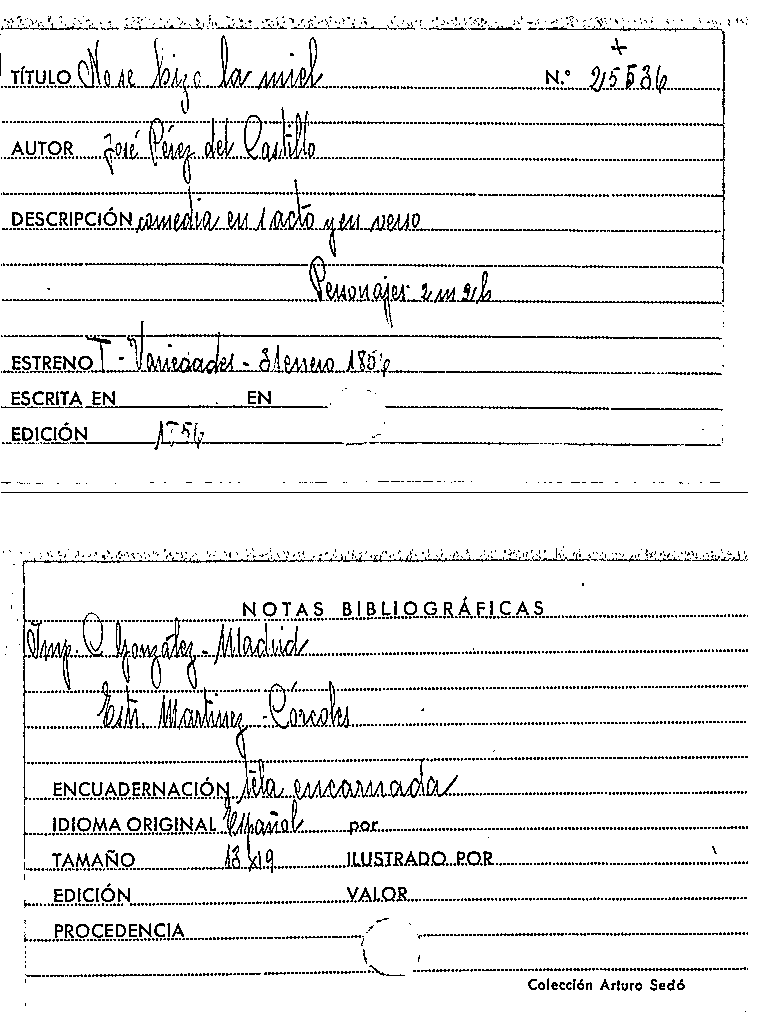 +
TÍTULO No se hizo la miel N.º 25536
AUTOR José Pérez del Castillo
DESCRIPCIÓN comedia en 1 acto y en verso
Personajes 2 m 2 h
ESTRENO T - Variedades - enero 1856
ESCRITA EN EN
EDICIÓN 1856
NOTAS BIBLIOGRÁFICAS
Imp. C González - Madrid
Estr. Martinez - Córcoles
ENCUADERNACIÓN tela encarnada
IDIOMA ORIGINAL Español por
TAMAÑO 13 x 19 ILUSTRADO POR
EDICIÓN VALOR
PROCEDENCIA
Colección Arturo Sedó